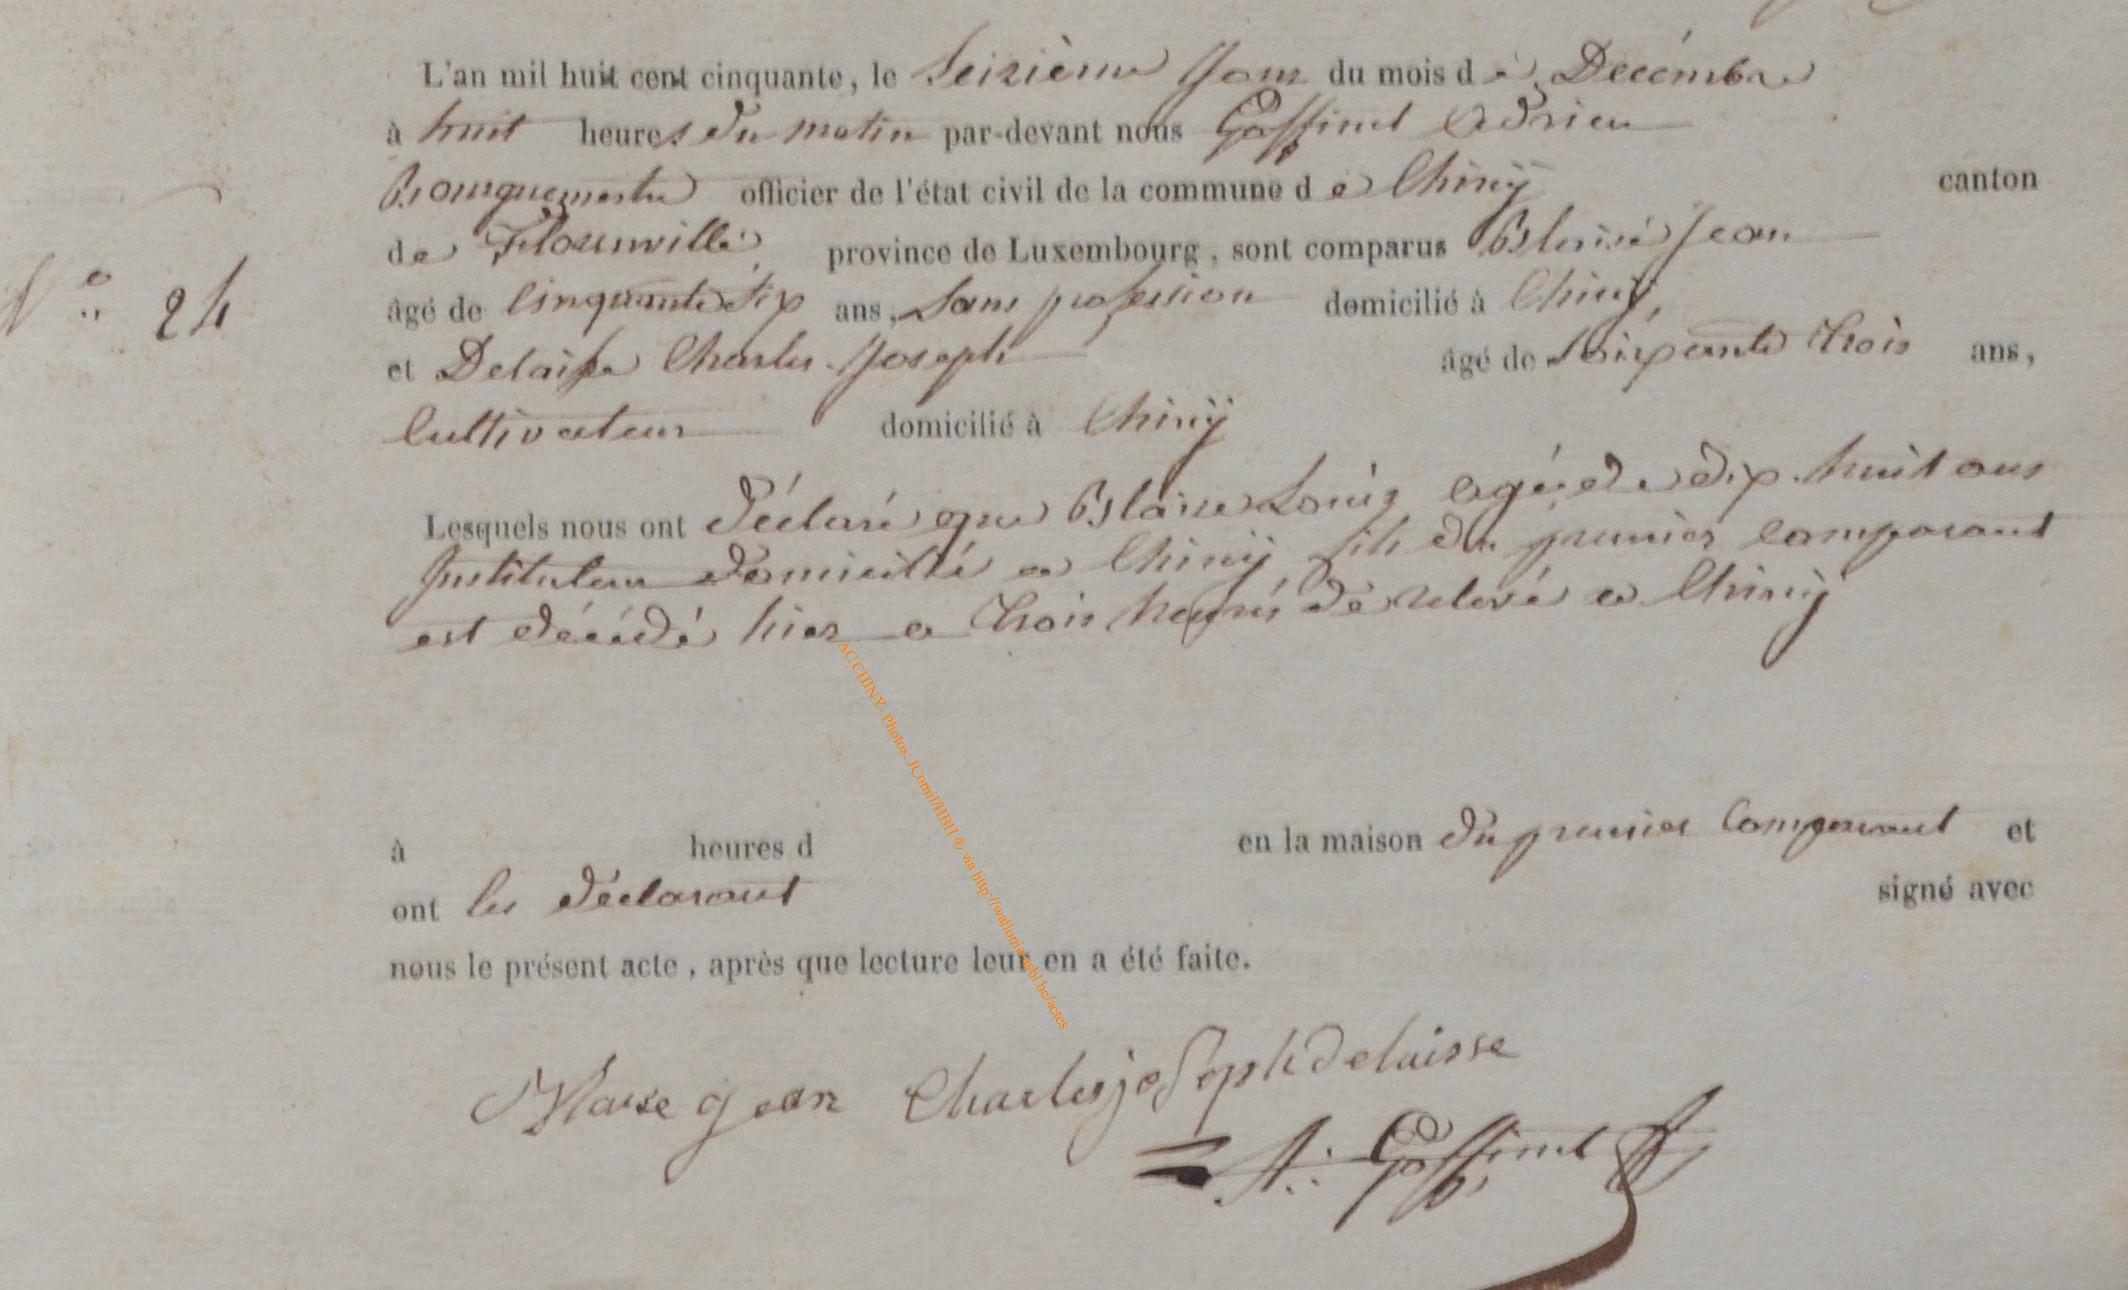 L'an mil huit cent cinquante, le Seizième Jour du mois de Décembre
à huit heures du matin par-devant nous Goffinet Adrien
Bourguemestre officier de l'état civil de la commune de Chinÿ canton
de Florenville province de Luxembourg, sont comparus Blaise Jean
âgé de Cinquante Six ans, Sans profession domicilié à Chiny,
et Delaisse Charles Joseph âgé de Soixante Trois ans,
Cultivateur domicilié à Chinÿ
N° 24
Lesquels nous ont déclaré que Blaise Louis agé de dix-huit ans
Instituteur domicilié a Chinÿ fils du premier comparant
est décédé hier a Trois heures de relevé a Chinÿ
à heures d en la maison du premier Comparant et
ont les déclarant signé avec
nous le présent acte, après que lecture leur en a été faite.
Blaise jean Charles joseph delaisse
A. Goffinet
AC CHINY- Photos JCornil/HBH ® via http://walloniasbl.be/actes